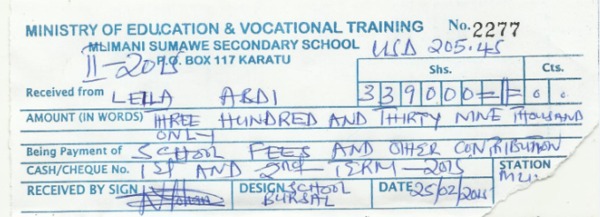 MINISTRY OF EDUCATION & VOCATIONAL TRAINING No. 2277
MLIMANI SUMAWE SECONDARY SCHOOL USD 205.45
II-2015 P.O. BOX 117 KARATU
Shs. Cts.
Received from LEILA ABDI 339000=// 0 0
AMOUNT (IN WORDS) THREE HUNDRED AND THIRTY NINE THOUSAND
ONLY
Being Payment of SCHOOL FEES AND OTHER CONTRIBUTION
CASH/CHEQUE No. 1ST AND 2ND TERM-2015 STATION
RECEIVED BY SIGN DESIGN SCHOOL BURSAL DATE 25/02/2015